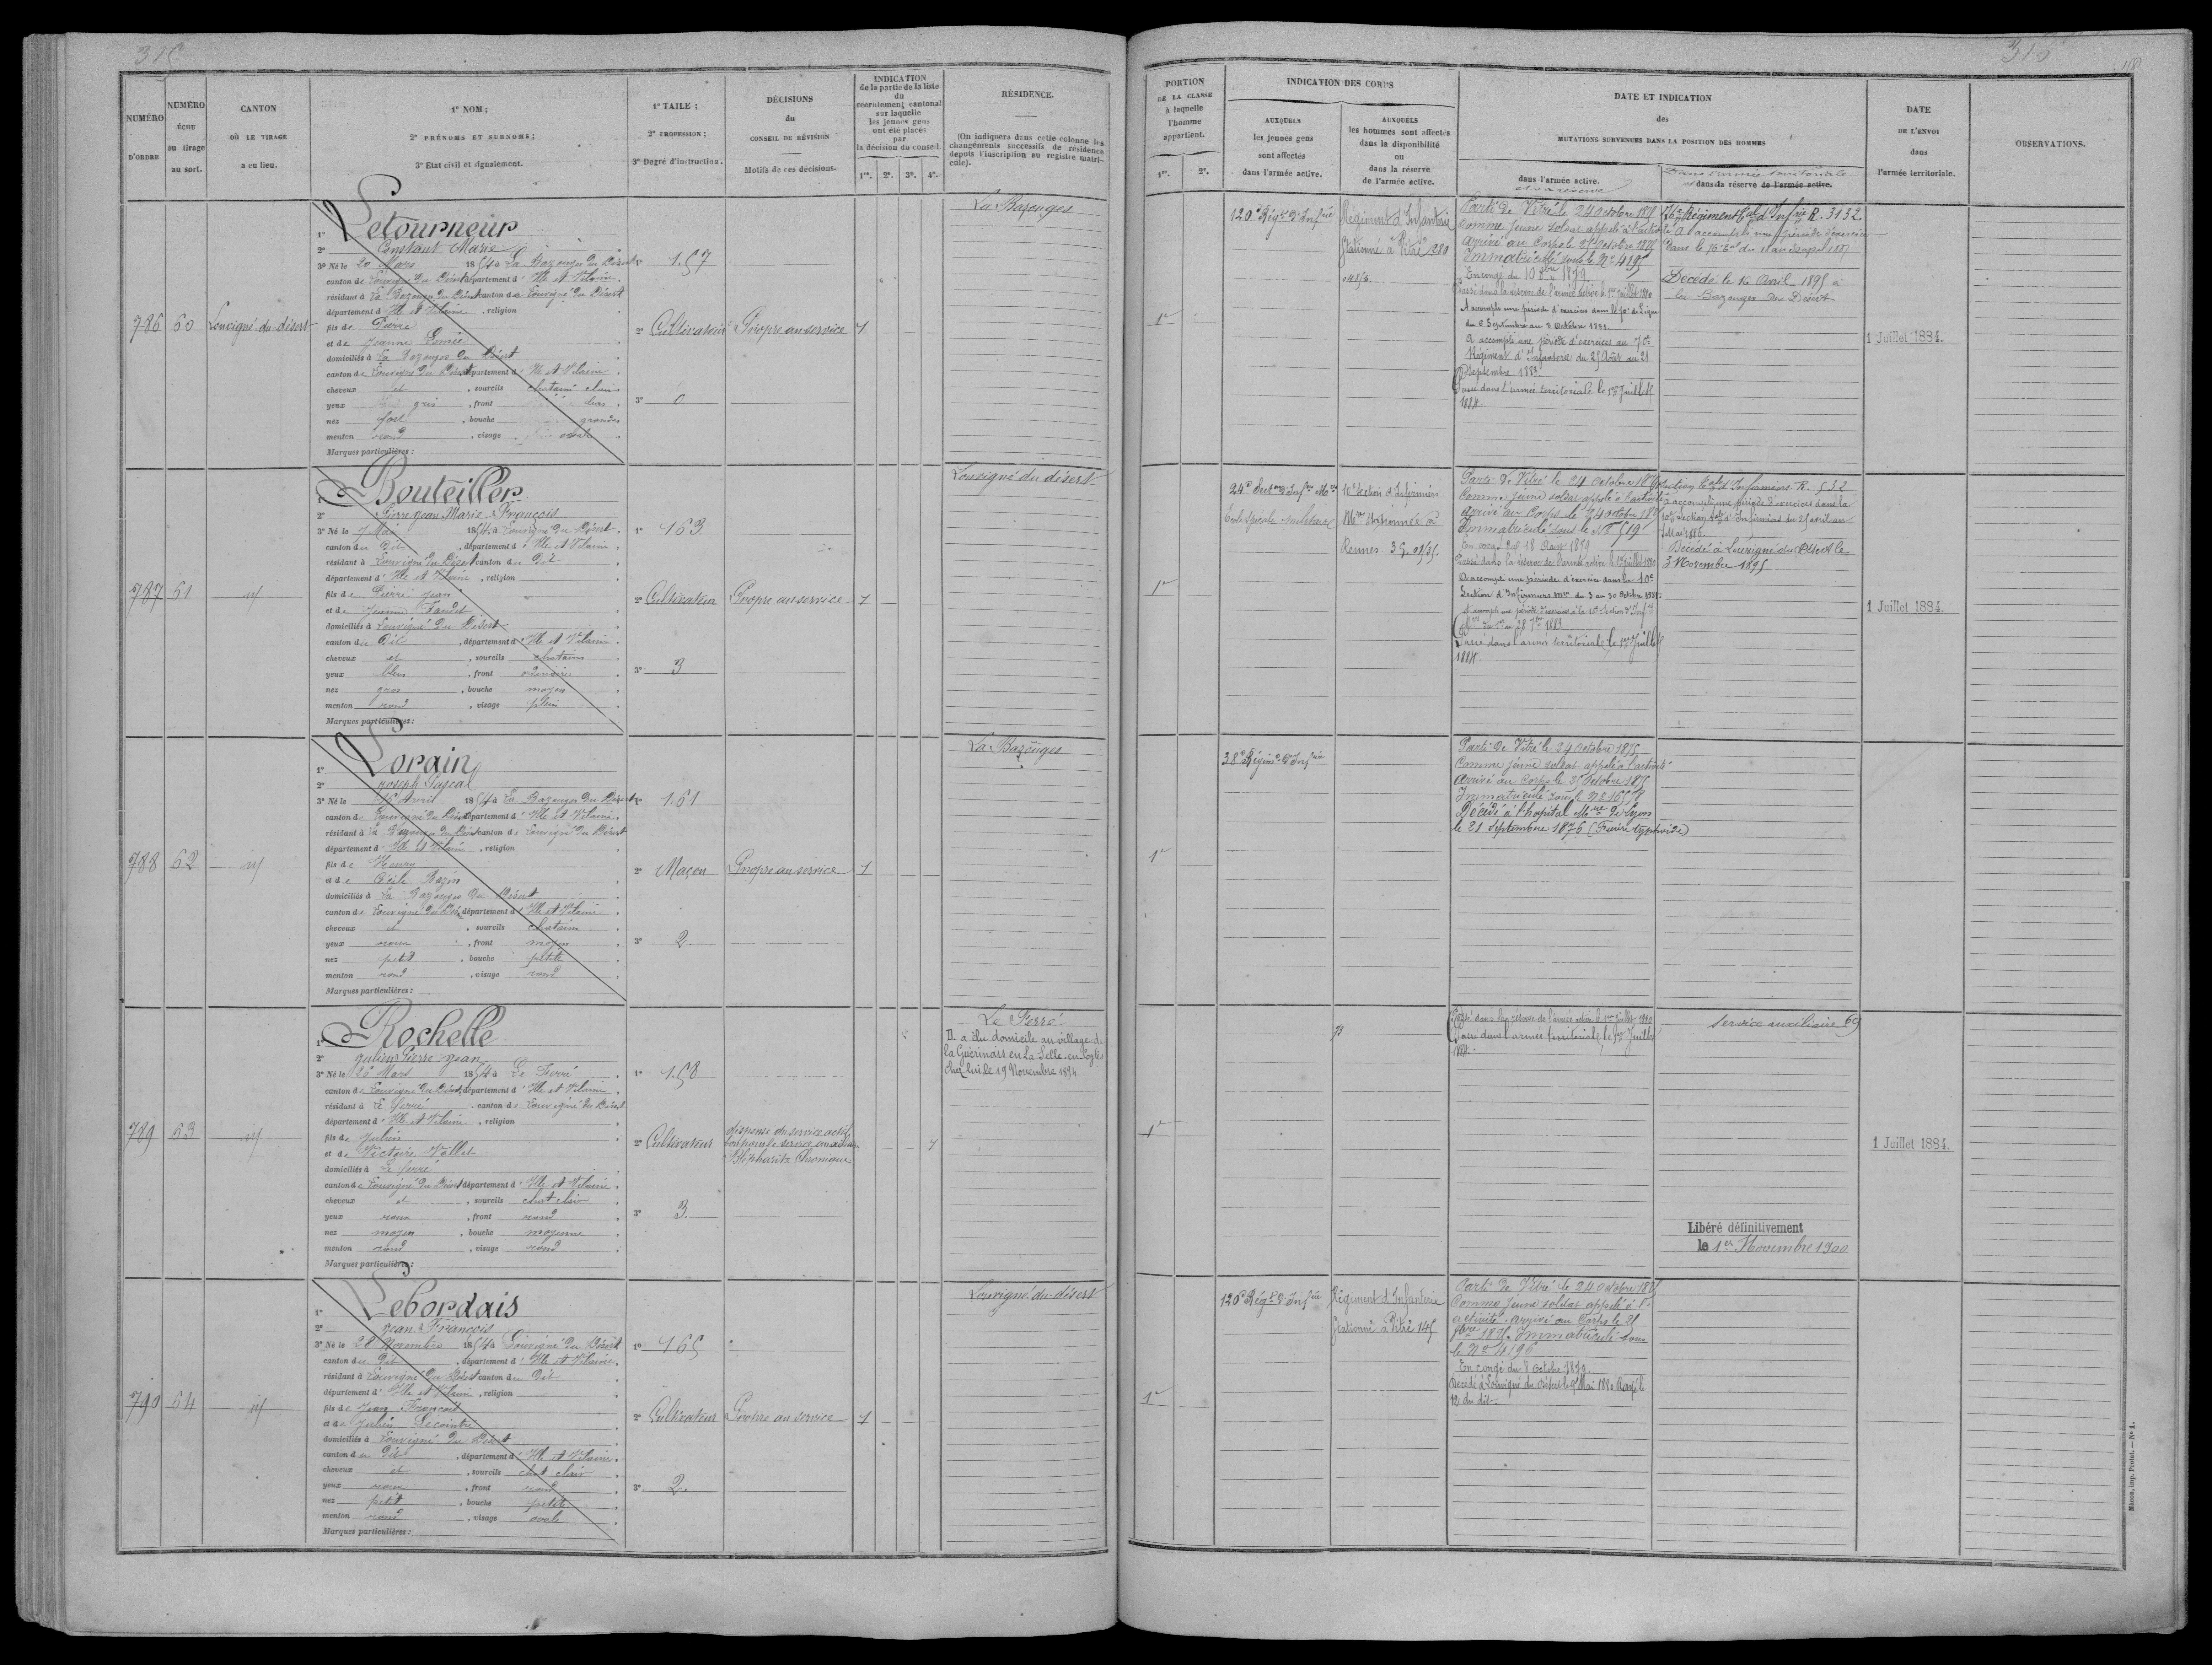 315
NUMÉRO
D'ORDRE
NUMÉRO
ÉCHU
au tirage
au sort.
CANTON
OÙ LE TIRAGE
a eu lieu.
1° NOM ;
2° PRÉNOMS ET SURNOMS ;
3° Etat civil et signalement.
1° TAILE ;
2° PROFESSION ;
3° Degré d'instruction.
DÉCISIONS
du
CONSEIL DE RÉVISION
Motifs de ces décisions.
INDICATION
de la partie de la liste
du
recrutement cantonal
sur laquelle
les jeunes gens
ont été placés
par
la décision du conseil.
1re. 2e. 3e. 4e.
RÉSIDENCE.
(On indiquera dans cette colonne les
changements successifs de résidence
depuis l'inscription au registre matri-
cule).
786 60 Louvigné-du-désert
1° Letourneur
2° Constant Marie
3° Né le 20 Mars 1854 à La Bazouges du Désert
canton de Louvigné du Désert département d'Ille et Vilaine
résidant à La Bazouges du Désert canton de Louvigné du Désert
département d'Ille et Vilaine , religion
fils de Pierre
et de Jeanne
domiciliés à La Bazouges du Désert
canton de Louvigné du Désert département d'Ille et Vilaine
cheveux et , sourcils chatains clairs
yeux gris , front bas
nez fort , bouche grande
menton rond , visage
Marques particulières :
1° 1.57
2° Cultivateur
3° 0
Propre au service
1
La Bazouges
787 61 id
1° Bouteiller
2° Pierre Jean Marie François
3° Né le 7 Mai 1854 à Louvigné du Désert
canton du dit , département d'Ille et Vilaine
résidant à Louvigné du Désert canton du Dit
département d'Ille et Vilaine , religion
fils de Pierre Jean
et de Jeanne
domiciliés à Louvigné du Désert
canton du Dit , département d'Ille et Vilaine
cheveux et , sourcils chatains
yeux bleus , front ordinaire
nez gros , bouche moyen
menton rond , visage plein
Marques particulières :
1° 163
2° Cultivateur
3° 3
Propre au service
1
Louvigné du désert
788 62 id
1° Lorain
2° Joseph Pascal
3° Né le 16 Avril 1854 à La Bazouges du Désert
canton de Louvigné du Désert département d'Ille et Vilaine
résidant à La Bazouges du Désert canton de Louvigné du Désert
département d'Ille et Vilaine , religion
fils de Henry
et de Cécile Bazin
domiciliés à La Bazouges du Désert
canton de Louvigné du Désert département d'Ille et Vilaine
cheveux et , sourcils chatains
yeux roux , front moyen
nez petit , bouche petite
menton rond , visage rond
Marques particulières :
1° 1.61
2° Maçon
3° 2
Propre au service
1
La Bazouges
789 63 id
1° Rochelle
2° Julien Pierre Jean
3° Né le 26 Mars 1854 à Le Ferré
canton de Louvigné du Désert, département d'Ille et Vilaine
résidant à Le Ferré canton de Louvigné du Désert
département d'Ille et Vilaine , religion
fils de Julien
et de Victoire Vallet
domiciliés à Le Ferré
canton de Louvigné du Désert département d'Ille et Vilaine
cheveux et , sourcils chat clair
yeux roux , front rond
nez moyen , bouche moyenne
menton rond , visage rond
Marques particulières :
1° 1.58
2° Cultivateur
3° 3
dispensé du service actif
bon pour le service auxiliaire
Blépharite Chronique
1
Le Ferré
Il a élu domicile au village de
la Guérinais en La Selle-en-Coglès
chez lui le 19 Novembre 1894
790 64 id
1° Lebordais
2° Jean François
3° Né le 28 Novembre 1854 à Louvigné du Désert
canton du Dit , département d'Ille et Vilaine
résidant à Louvigné du Désert canton du Dit
département d'Ille et Vilaine , religion
fils de Jean François
et de Julien Lecointre
domiciliés à Louvigné du Désert
canton du Dit , département d'Ille et Vilaine
cheveux et , sourcils chat clair
yeux roux , front rond
nez petit , bouche petite
menton rond , visage ovale
Marques particulières :
1° 165
2° Cultivateur
3° 2
Propre au service
1
Louvigné du désert
315
PORTION
DE LA CLASSE
à laquelle
l'homme
appartient.
1re. 2e.
INDICATION DES CORPS
AUXQUELS
les jeunes gens
sont affectés
dans l'armée active.
AUXQUELS
les hommes sont affectés
dans la disponibilité
ou
dans la réserve
de l'armée active.
DATE ET INDICATION
des
MUTATIONS SURVENUES DANS LA POSITION DES HOMMES
dans l'armée active.
et sa réserve
Dans l'armée territoriale
et dans la réserve de l'armée active.
DATE
DE L'ENVOI
dans
l'armée territoriale.
OBSERVATIONS.
1re
120e Régt d'Infrie
Régiment d'Infanterie
stationné à Vitré 1280
Parti de Vitré le 24 Octobre 1875
Comme jeune soldat appelé à l'activité
Arrivé au Corps le 25 Octobre 1875
Immatriculé sous le No 4195
En congé du 10 8bre 1879
Passé dans la réserve de l'armée active le 1er Juillet 1880
A accompli une période d'exercices dans le 70e de Ligne
du 6 Septembre au 3 Octobre 1881.
A accompli une période d'exercices au 70e
Régiment d'Infanterie du 25 Août au 21
Septembre 1883
Passé dans l'armée territoriale le 1er Juillet
1884.
76e Régiment tal d'Infrie R. 3132
A accompli une période d'exercices
Dans le 76e tal du 11 au 23 avril 1887
Décédé le 16 Avril 1895 à
la Bazouges du Désert
1 Juillet 1884.
1re
24e Section d'Infrs Mres
Ecole Spéciale militaire
10e section d'Infirmiers
Mres stationnée à
Rennes 35.
Parti de Vitré le 24 Octobre 1875
Comme jeune soldat appelé à l'activité
arrivé au Corps le 24 octobre 1875
Immatriculé sous le No 519
En congé du 18 Aout 1879
Passé dans la réserve de l'armée active le 1er Juillet 1880
A accompli une période d'exercice dans la 10e
Section d'Infirmiers mres du 3 au 30 Octobre 1881.
A accompli une période d'exercices à la 10e Section d'Infrs
Mres du 1er au 28 7bre 1883
Passé dans l'armée territoriale le 1er Juillet
1884.
Section tale d'Infirmiers R. 532
A accompli une période d'exercices dans la
10e section tale d'Infirmiers du 25 avril au
7 Mai 1886.
Décédé à Louvigné du Désert le
3 Novembre 1895
1 Juillet 1884.
1re
38e Régimt d'Infrie
Parti de Vitré le 24 Octobre 1875
Comme jeune soldat appelé à l'activité
Arrivé au Corps le 25 Octobre 1875
Immatriculé sous le No
Décédé à l'hopital Mre de Lyon
le 21 Septembre 1876 (Fièvre typhoïde)
1re
Passé dans la réserve de l'armée active le 1er Juillet 1880
Passé dans l'armée territoriale le 1er Juillet
1884.
service auxiliaire 69
Libéré définitivement
le 1er Novembre 1900
1 Juillet 1884.
1re
120e Régt d'Infrie
Régiment d'Infanterie
stationné à Vitré 145
Parti de Vitré le 24 Octobre 1875
Comme jeune soldat appelé à l'
activité. Arrivé au Corps le 25
8bre 1875. Immatriculé sous
le No 4196
En congé du 8 Octobre 1879
Décédé à Louvigné du Désert le 9 Mai 1880 Rayé le
12 du dit.
Mâcon, imp. Protat. — No 1.